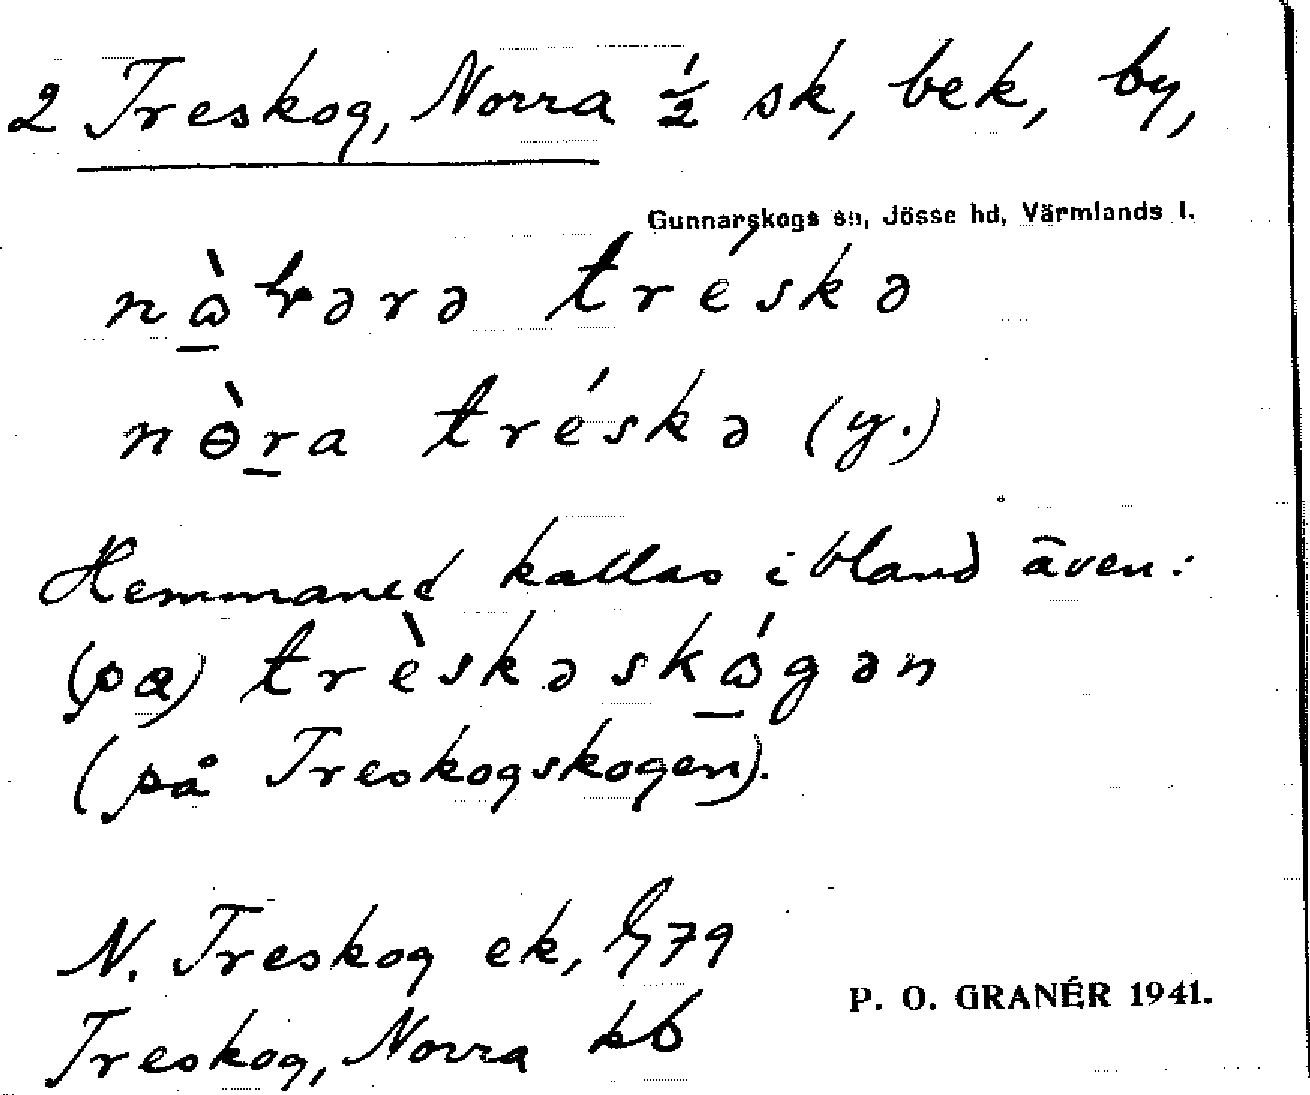 2 Treskog, Norra ½ sk, bek, by,
Gunnarskogs sn, Jösse hd, Värmlands l.
tréskə
nɵ̀ra tréskə (y.)
Hemmanet kallas ibland även:
(pα) trèskəskɷ́gən
(på Treskogskogen).
N. Treskog ek, 79
Treskog, Norra kb
P. O. GRANÉR 1941.